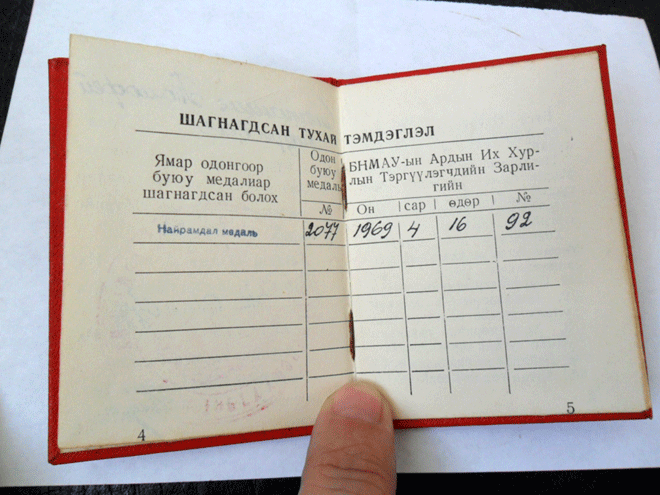 ШАГНАГДСАН ТУХАЙ ТЭМДЭГЛЭЛ
Ямар одонгоор
буюу медалиар
шагнагдсан болох
Одон
буюу
медаль
№
БНМАУ-ын Ардын Их Хур-
лын Тэргүүлэгчдийн Зарли-
гийн
Он сар өдөр №
Найрамдал медаль 2077 1969 4 16 92
4
5